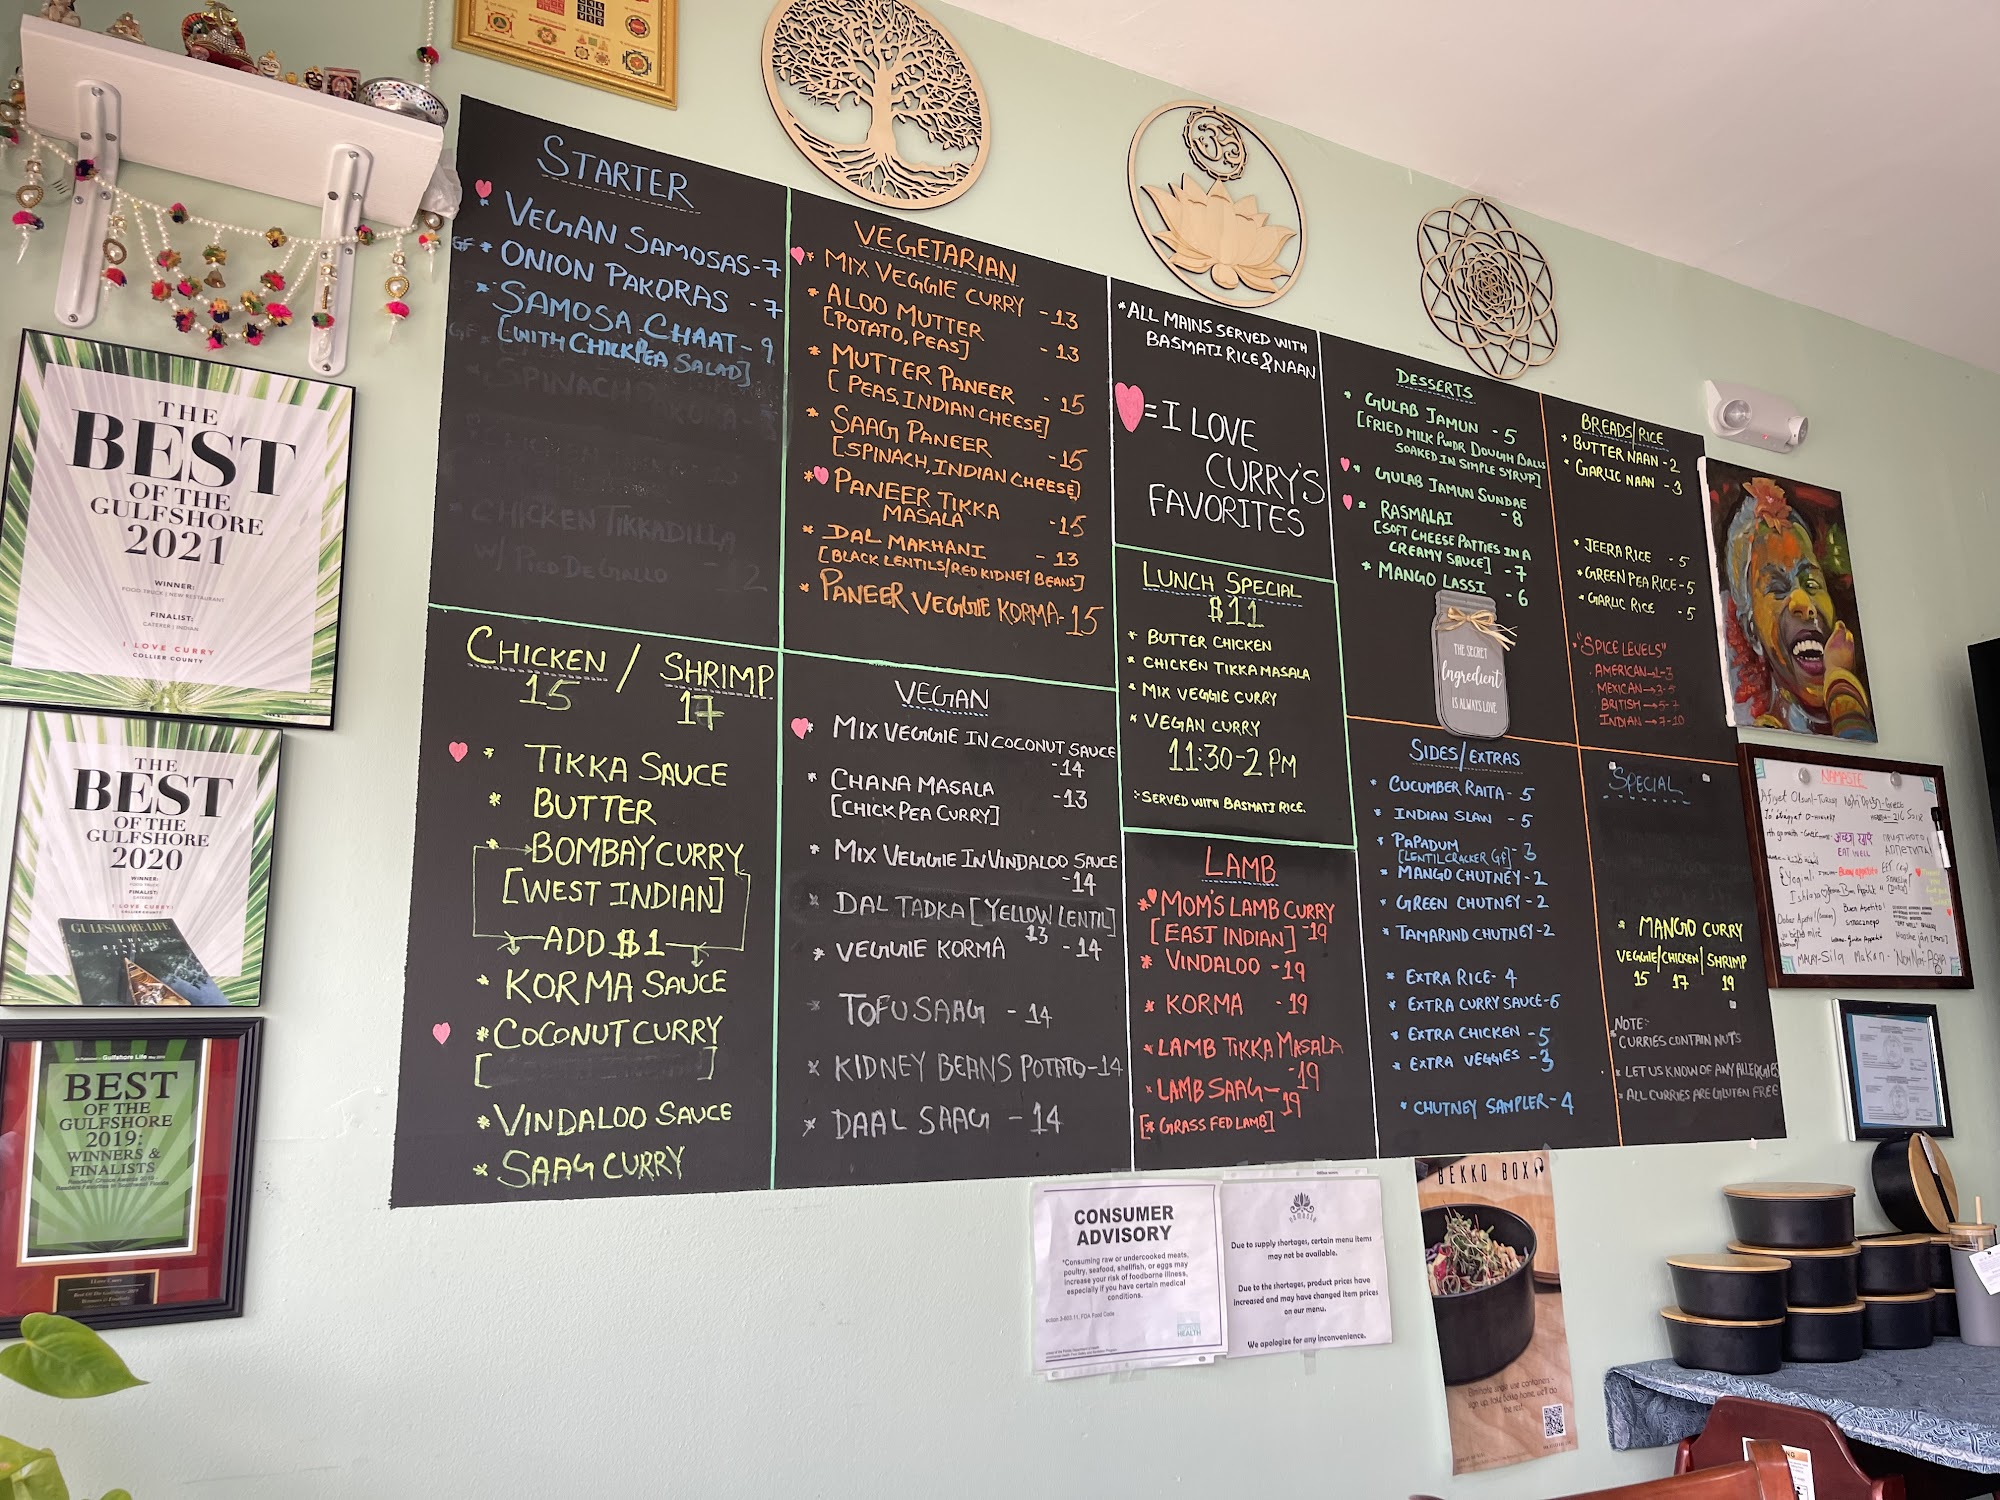 THE
BEST
OF THE
GULFSHORE
2021
WINNER:
FOOD TRUCK | NEW RESTAURANT
FINALIST:
CATERER | INDIAN
I LOVE CURRY
COLLIER COUNTY
THE
BEST
OF THE
GULFSHORE
2020
WINNER:
FOOD TRUCK
FINALIST:
I LOVE CURRY
COLLIER COUNTY
GULFSHORE LIFE
BEST
OF THE
GULFSHORE
2019:
WINNERS &
FINALISTS
STARTER
* VEGAN SAMOSAS-7
GF * ONION PAKORAS -7
* SAMOSA CHAAT-9
[WITH CHICKPEA SALAD]
* CHICKEN TIKKADILLA
W/ PICO DE GALLO
CHICKEN / SHRIMP
15 17
* TIKKA SAUCE
* BUTTER
* BOMBAY CURRY
[WEST INDIAN]
ADD $1
* KORMA SAUCE
* COCONUT CURRY
[ ]
* VINDALOO SAUCE
* SAAG CURRY
VEGETARIAN
* MIX VEGGIE CURRY -13
* ALOO MUTTER
[POTATO, PEAS] -13
* MUTTER PANEER -15
[PEAS, INDIAN CHEESE]
* SAAG PANEER -15
[SPINACH, INDIAN CHEESE]
* PANEER TIKKA
MASALA -15
* DAL MAKHANI -13
[BLACK LENTILS/RED KIDNEY BEANS]
* PANEER VEGGIE KORMA-15
VEGAN
* MIX VEGGIE IN COCONUT SAUCE
-14
* CHANA MASALA -13
[CHICKPEA CURRY]
* MIX VEGGIE IN VINDALOO SAUCE
-14
* DAL TADKA [YELLOW LENTIL]
13
* VEGGIE KORMA -14
* TOFU SAAG -14
* KIDNEY BEANS POTATO-14
* DAAL SAAG -14
* ALL MAINS SERVED WITH
BASMATI RICE & NAAN
= I LOVE
CURRY'S
FAVORITES
LUNCH SPECIAL
$11
* BUTTER CHICKEN
* CHICKEN TIKKA MASALA
* MIX VEGGIE CURRY
* VEGAN CURRY
11:30-2 PM
SERVED WITH BASMATI RICE.
LAMB
* MOM'S LAMB CURRY
[EAST INDIAN] -19
* VINDALOO -19
* KORMA -19
* LAMB TIKKA MASALA
-19
* LAMB SAAG-19
[* GRASS FED LAMB]
DESSERTS
* GULAB JAMUN -5
[FRIED MILK PWDR DOUGH BALLS
SOAKED IN SIMPLE SYRUP]
* GULAB JAMUN SUNDAE
-8
* RASMALAI
[SOFT CHEESE PATTIES IN A
CREAMY SAUCE] -7
* MANGO LASSI -6
THE SECRET
Ingredient
IS ALWAYS LOVE
SIDES/EXTRAS
* CUCUMBER RAITA-5
* INDIAN SLAW -5
* PAPADUM -3
[LENTIL CRACKER GF]
* MANGO CHUTNEY-2
* GREEN CHUTNEY-2
* TAMARIND CHUTNEY-2
* EXTRA RICE-4
* EXTRA CURRY SAUCE-6
* EXTRA CHICKEN -5
* EXTRA VEGGIES -3
* CHUTNEY SAMPLER-4
BREADS/RICE
* BUTTER NAAN-2
* GARLIC NAAN -3
* JEERA RICE -5
* GREEN PEA RICE-5
* GARLIC RICE -5
"SPICE LEVELS"
AMERICAN-1-3
MEXICAN→3-5
BRITISH→5-7
INDIAN→7-10
SPECIAL
* MANGO CURRY
VEGGIE/CHICKEN/SHRIMP
15 17 19
NOTE:-
* CURRIES CONTAIN NUTS
* LET US KNOW OF ANY ALLERGIES
* ALL CURRIES ARE GLUTEN FREE
NAMASTE
EAT WELL
CONSUMER
ADVISORY
"Consuming raw or undercooked meats,
poultry, seafood, shellfish, or eggs may
increase your risk of foodborne illness,
especially if you have certain medical
conditions.
HEALTH
namaste
Due to supply shortages, certain menu items
may not be available.
Due to the shortages, product prices have
increased and may have changed item prices
on our menu.
We apologize for any inconvenience.
BEKKO BOX